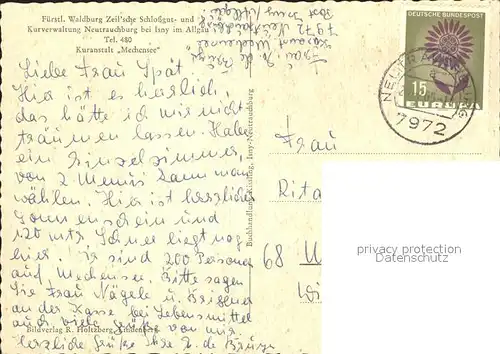 Fürstl. Waldburg Zeil'sche Schloßgut- und
Kurverwaltung Neutrauchburg bei Isny im Allgäu
Tel. 480
Kuranstalt „Mechensee"
7972 Neutrauchburg
DEUTSCHE BUNDESPOST
15
EUROPA
NEUTRAUCHBURG
7972
Liebe Frau Spät.
Hier ist es herrlich,
das hätte ich mir nicht
träumen lassen. Habe
ein Einzelzimmer,
von 2 Menüs kann man
wählen. Hier ist herrlicher
Sonnenschein und
120 mtr Schnee liegt noch
hier. Wir sind 200 Personen
auf Mechensee. Bitte sagen
Sie Frau Nägele u.
an der Kasse bei Lebensmittel
auch viele Grüße von mir.
herzliche Grüße Ihre
Buchhandlung Kißling, Isny-Neutrauchburg
Bildverlag R. Holtzberg, Lindenberg
Frau
Rita
68
privacy protection
DARMSTADT. GMBH